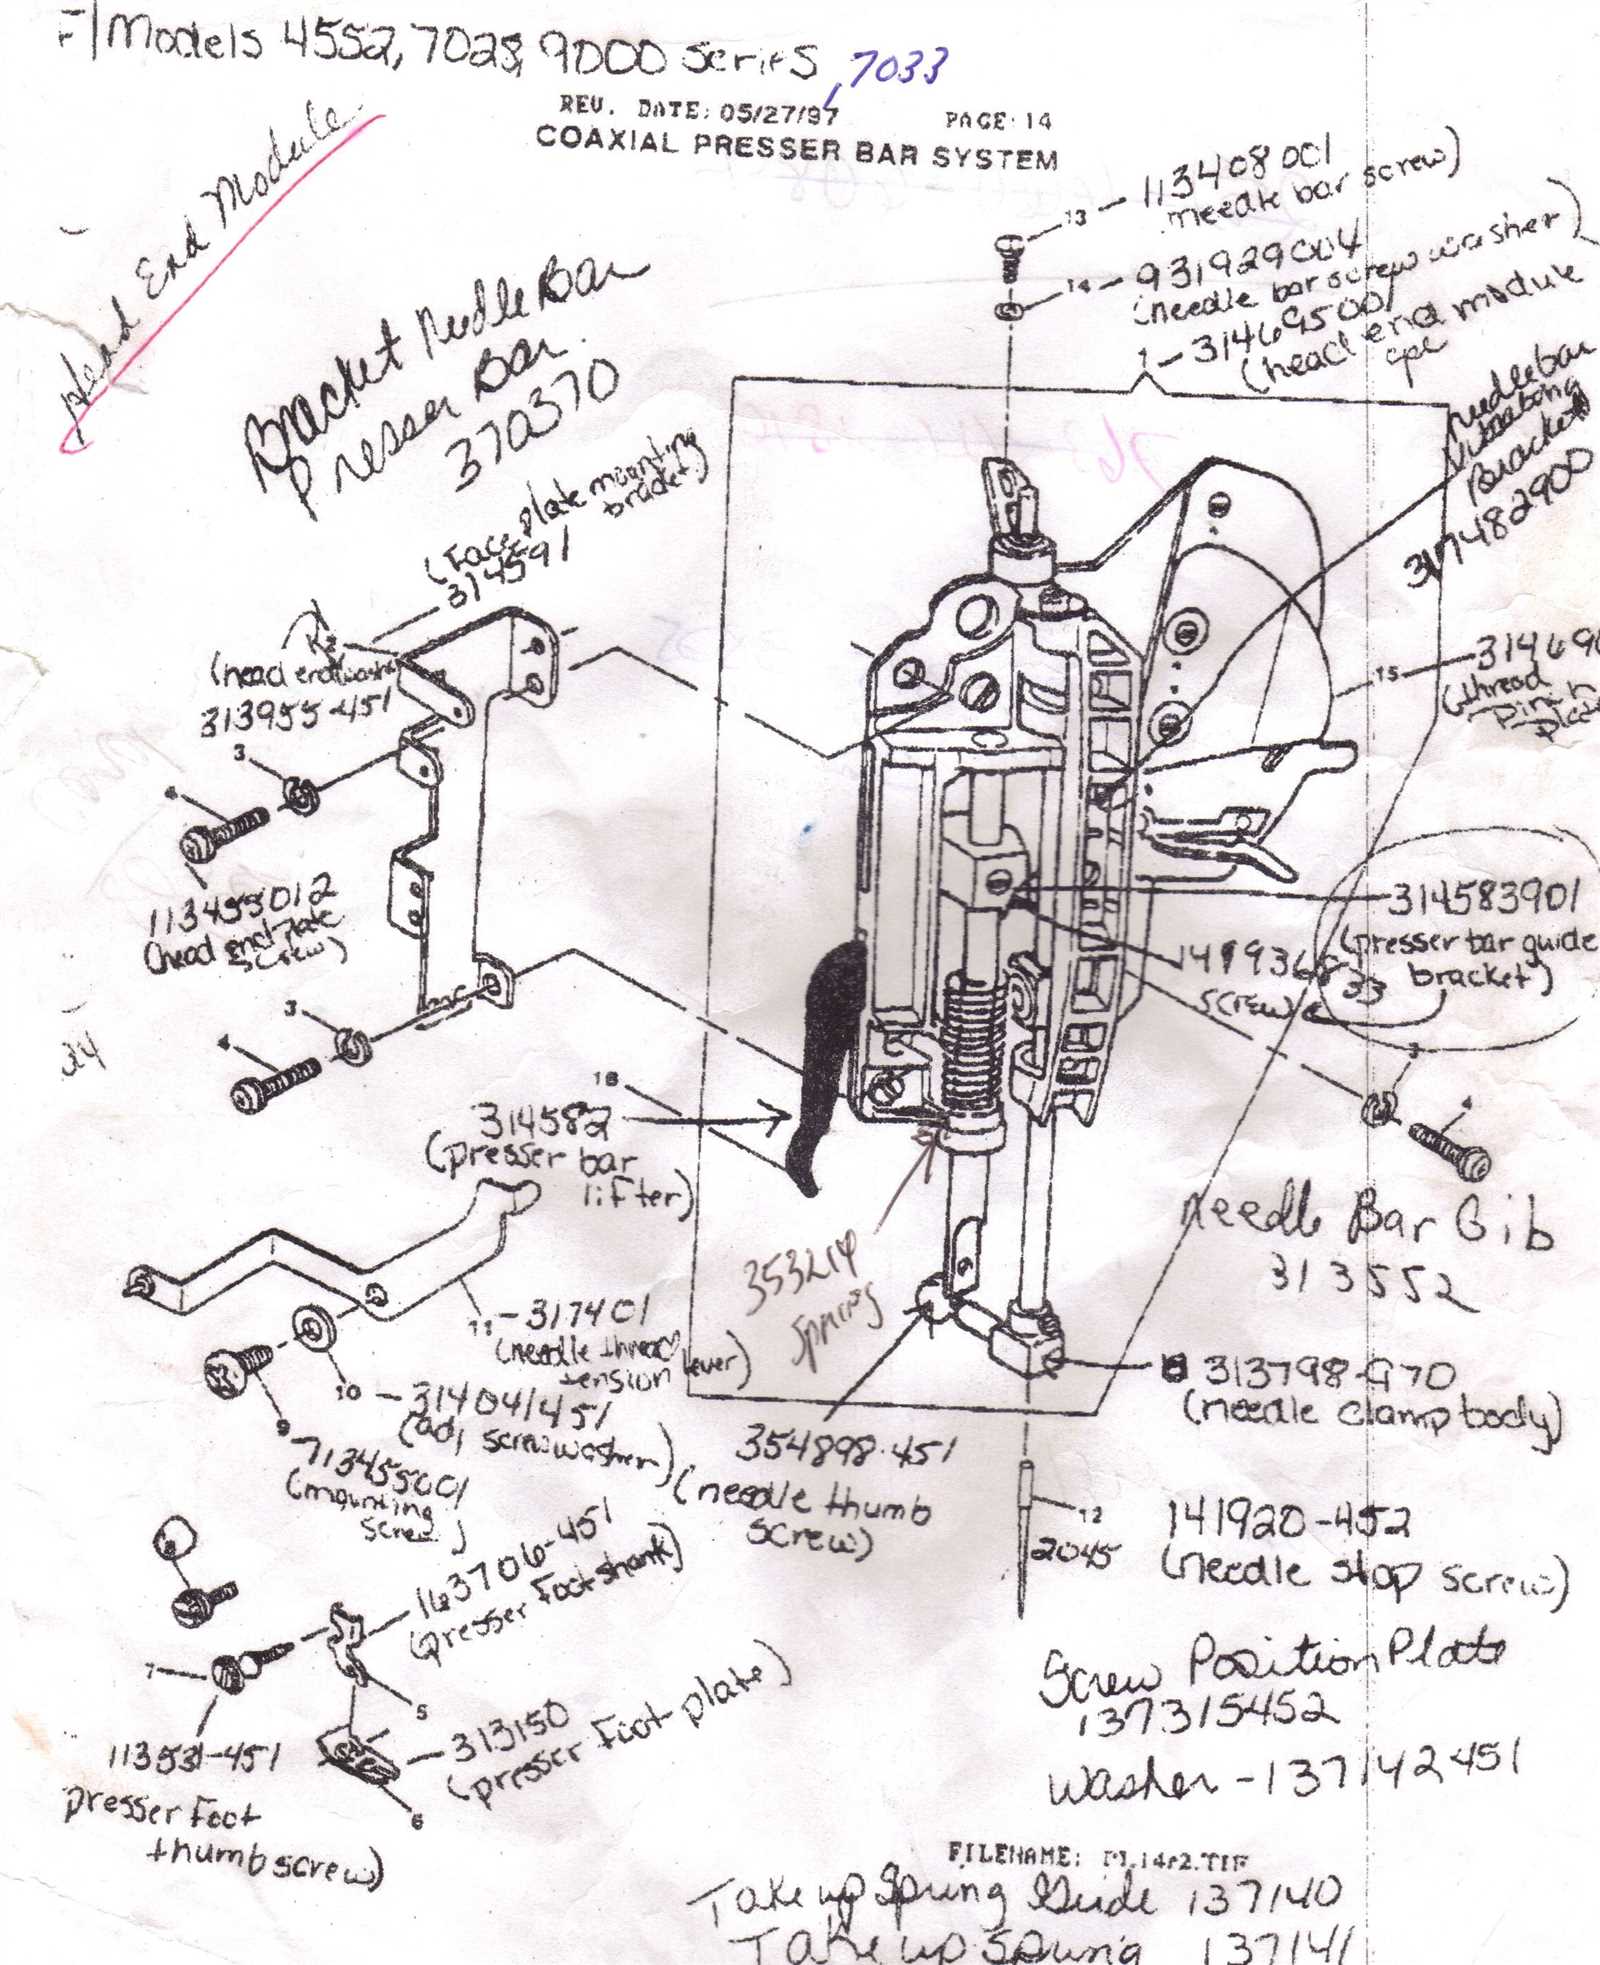 F/Models 4552, 7028, 9000 series, 7033
REV. DATE: 05/27/97 PAGE 14
COAXIAL PRESSER BAR SYSTEM
Head End Module
Bracket Needle Bar
Presser Bar
370370
13 - 113408001
needle bar screw)
14 - 931929004
(needle bar screw washer)
1 - 314695001
(head end module
cpl
needle bar
Bracket
317482900
(Face plate mounting
bracket)
314591
(head end washer
313955-451
3
4
113455012
(head end plate
screw)
3
4
15
(thread
plate
314583901
(presser bar guide
bracket)
screw)
33
3
4
18
314582
(presser bar
lifter)
353214
spring
Needle Bar Gib
313552
11 - 317401
(needle thread
tension lever)
10 - 314041451
(adj screw washer)
9
713455001
(mounting
screw)
354898-451
(needle thumb
screw)
313798-G70
(needle clamp body)
12
2045
141920-452
(needle stop screw)
163706-451
(presser Foot shank)
7
5
113531-451
presser Foot
thumbscrew)
313150
(presser Foot plate)
6
Screw Position Plate
137315452
Washer - 137142451
FILENAME:
Take up Spring Guide 137140
Take up Spring 137141
24